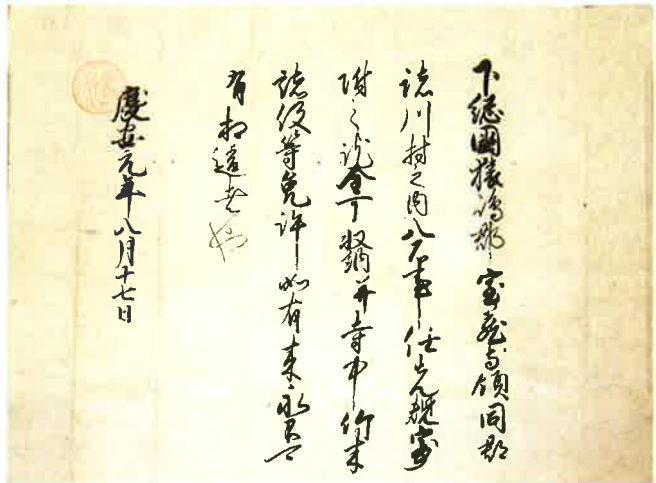 下総國猿嶋郡寺領同郡
諸川村之内八石事任先規寄
附之訖全可収納并寺中竹木
諸役等免許如有来永不可
有相違者也
慶安元年八月十七日